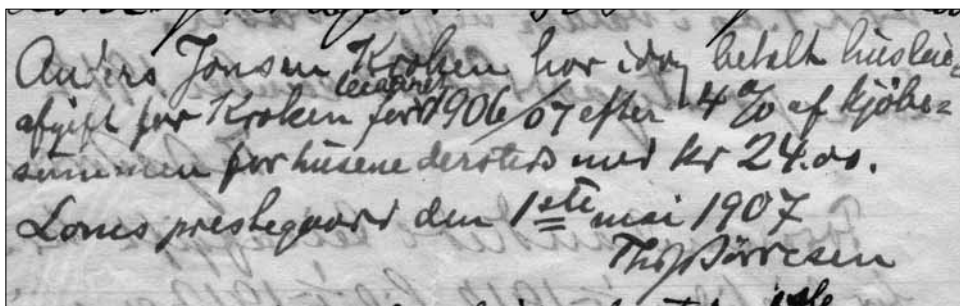 Anders Jonsen Kroken har idag betalt husleie=
afgift for Kroken for leieaaret 1906/07 efter 4 % af kjöbe=
summen for husene dersteds med kr 24.00.
Loms prestegaard den 1ste mai 1907
Th. Börresen